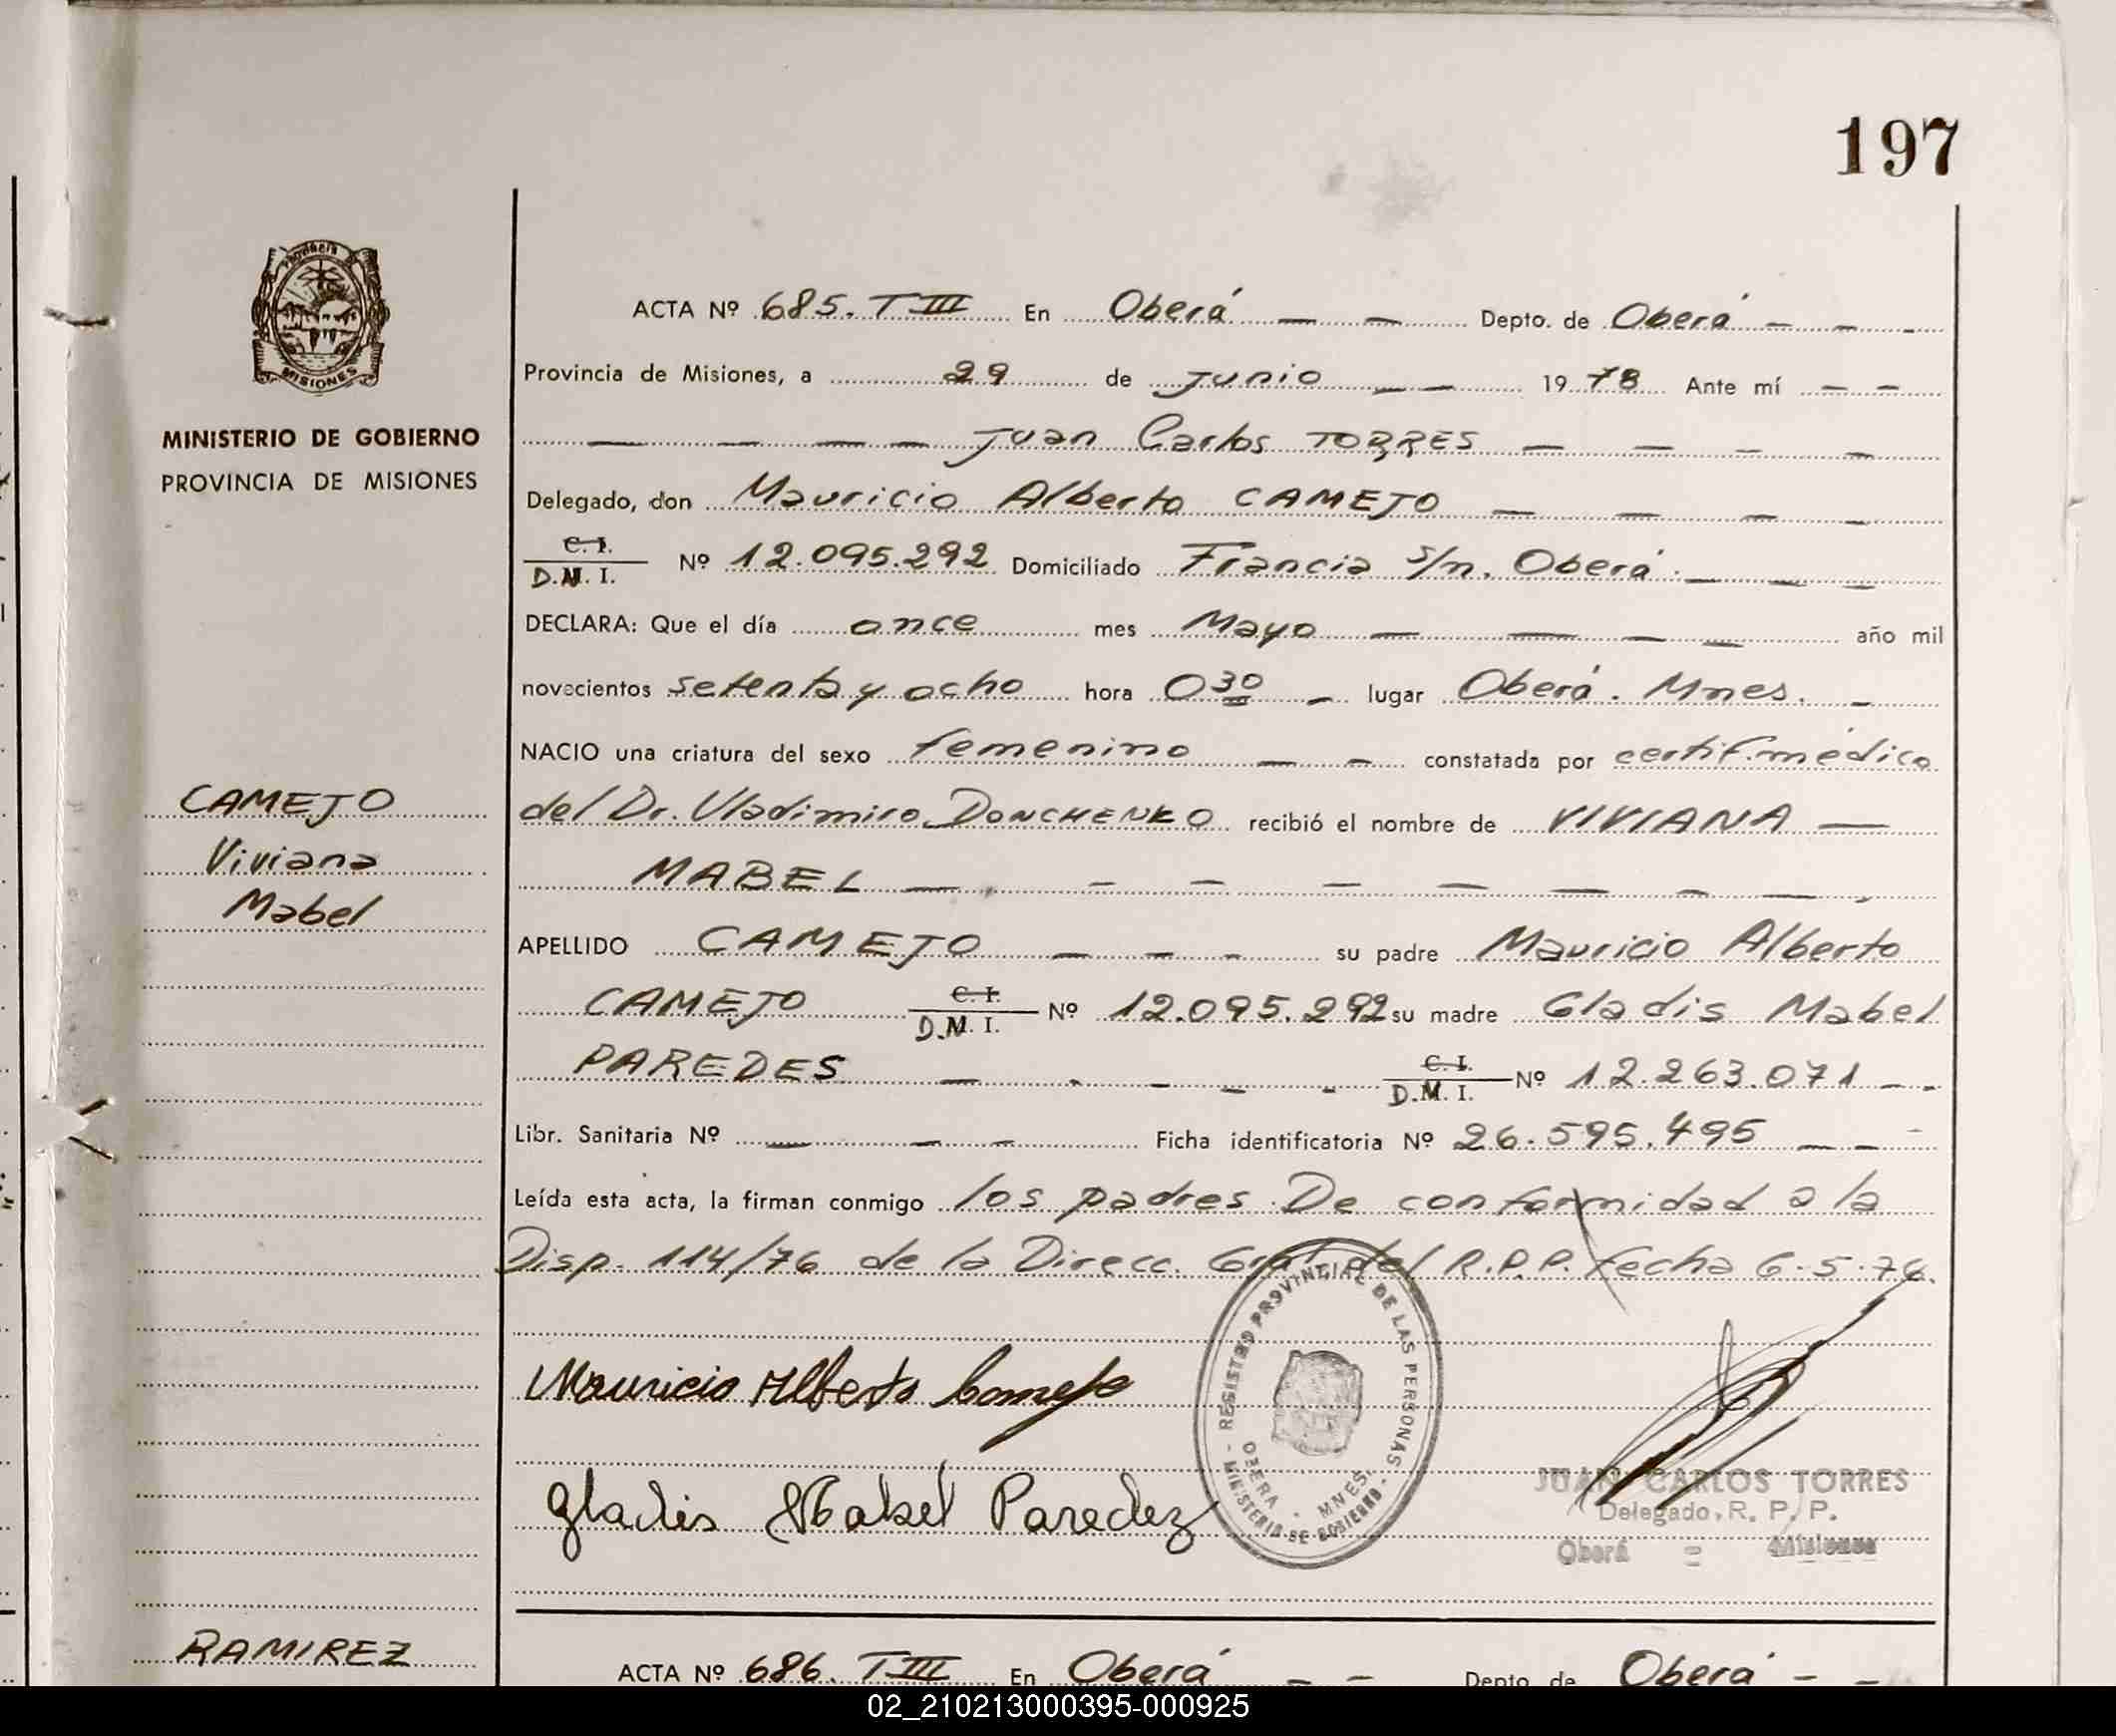 197
Provincia
MISIONES
MINISTERIO DE GOBIERNO
PROVINCIA DE MISIONES
CAMEJO
Viviana
Mabel
RAMIREZ
ACTA Nº 685. T III En Oberá — — Depto. de Oberá — — -
Provincia de Misiones, a 29 de junio — — 1978 Ante mí — —
— — — — Juan Carlos TORRES — — — —
Delegado, don Mauricio Alberto CAMEJO — — — —
C. I.
D.M. I. Nº 12.095.292 Domiciliado Francia s/n. Oberá. — — —
DECLARA: Que el día once mes Mayo — — — — año mil
novecientos setenta y ocho hora 0 30 — lugar Oberá. Mnes. —
NACIO una criatura del sexo femenino — — constatada por certif. médico
del Dr. Vladimiro DONCHENKO recibió el nombre de VIVIANA —
MABEL — - — — — — — — —
APELLIDO CAMEJO — — - su padre Mauricio Alberto
CAMEJO C. I. D.M. I. Nº 12.095.292 su madre Gladis Mabel
PAREDES — - — — - C. I. D.M. I. Nº 12.263.071 - -
Libr. Sanitaria Nº — — — Ficha identificatoria Nº 26.595.495 — — -
Leída esta acta, la firman conmigo los padres. De conformidad a la
Disp. 114/76 de la Direcc. Gral. del R.P.P. fecha 6.5.76.
Mauricio Alberto Camejo
Gladis Mabel Paredez
- REGISTRO PROVINCIAL DE LAS PERSONAS -
OBERA - MNES.
MINISTERIO DE GOBIERNO
JUAN CARLOS TORRES
Delegado, R. P. P.
Oberá - Misiones
ACTA Nº 686. T III En Oberá — — Depto de Oberá — -
02_210213000395-000925